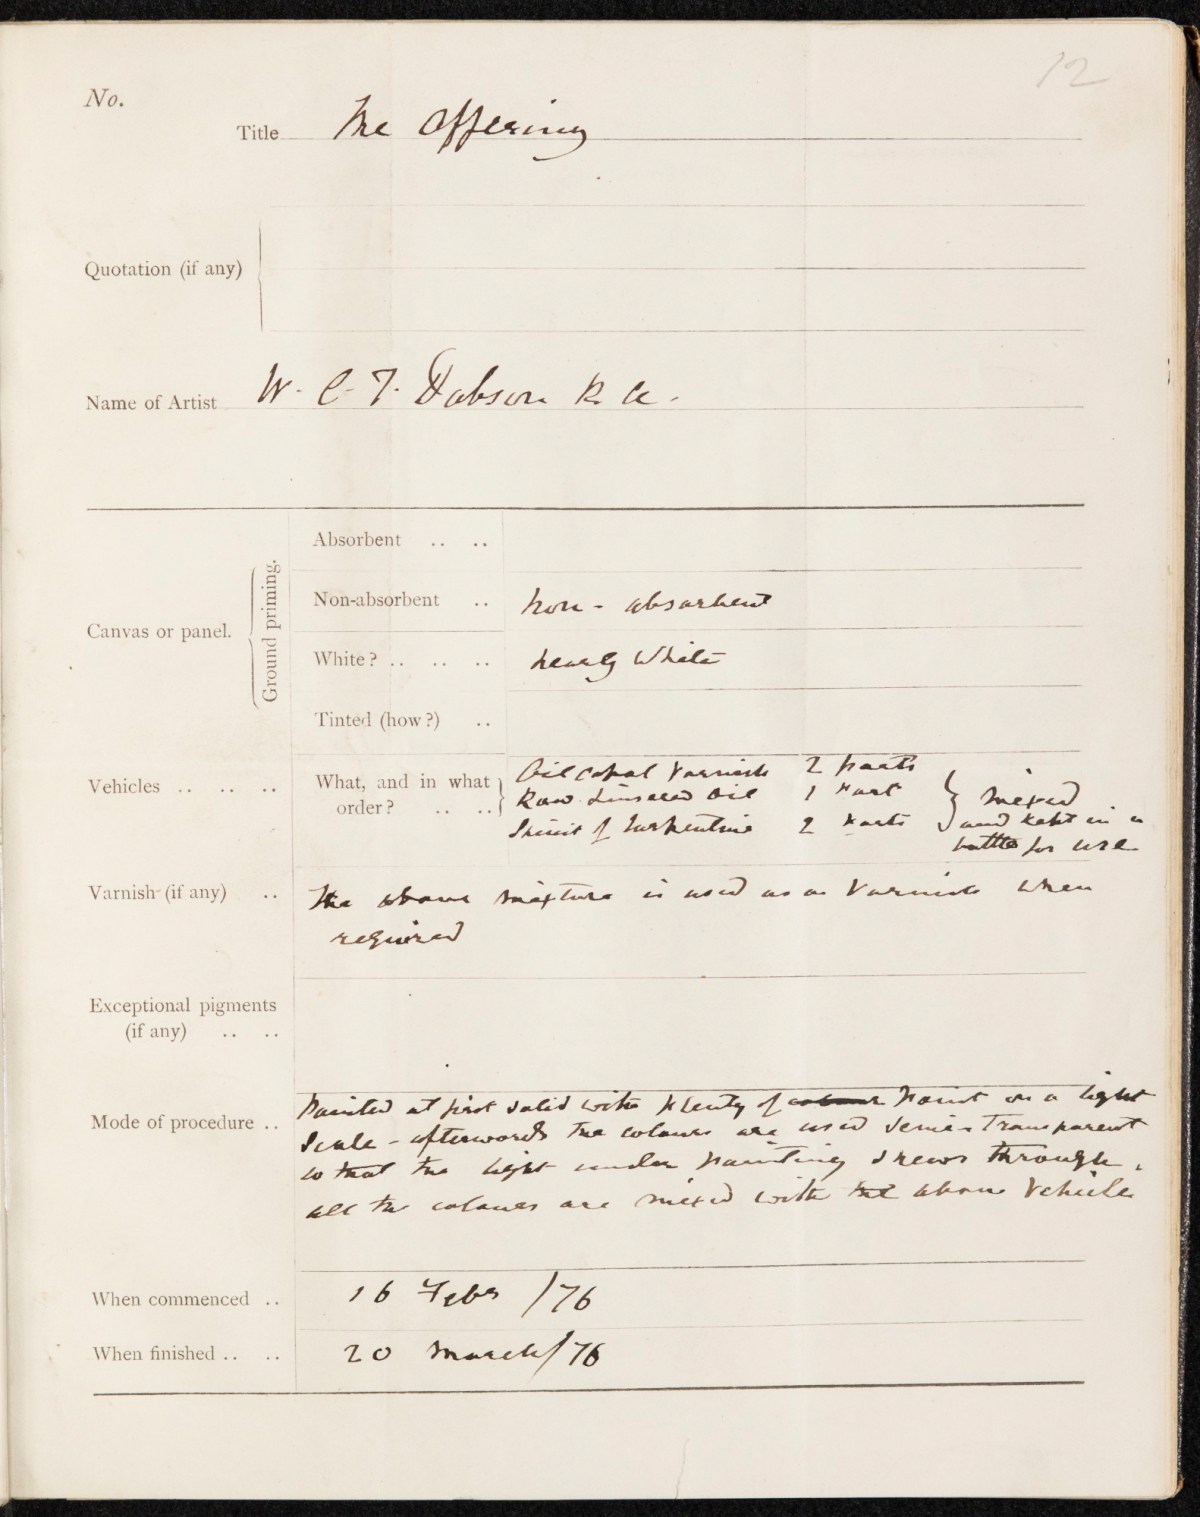 12
No.
Title The Offering
Quotation (if any)
Name of Artist W. C. T. Dobson R. A.
Canvas or panel.
Ground priming.
Absorbent .. ..
Non-absorbent .. Non-absorbent
White? .. .. .. nearly White
Tinted (how?) ..
Vehicles .. .. ..
What, and in what order? .. ..
Oil Copal Varnish 2 parts
Raw Linseed Oil 1 Part
Spirit of Turpentine 2 Parts
mixed
and kept in a
bottle for use
Varnish (if any) .. The above mixture is used as a Varnish when
required
Exceptional pigments
(if any) .. ..
Mode of procedure ..
Painted at first solid with plenty of colour Paint on a light
Scale - afterwards the colours are used Semi-Transparent
so that the light under painting shews through.
all the colours are mixed with the above Vehicle
When commenced .. 16 Feby /76
When finished .. .. 20 March/76